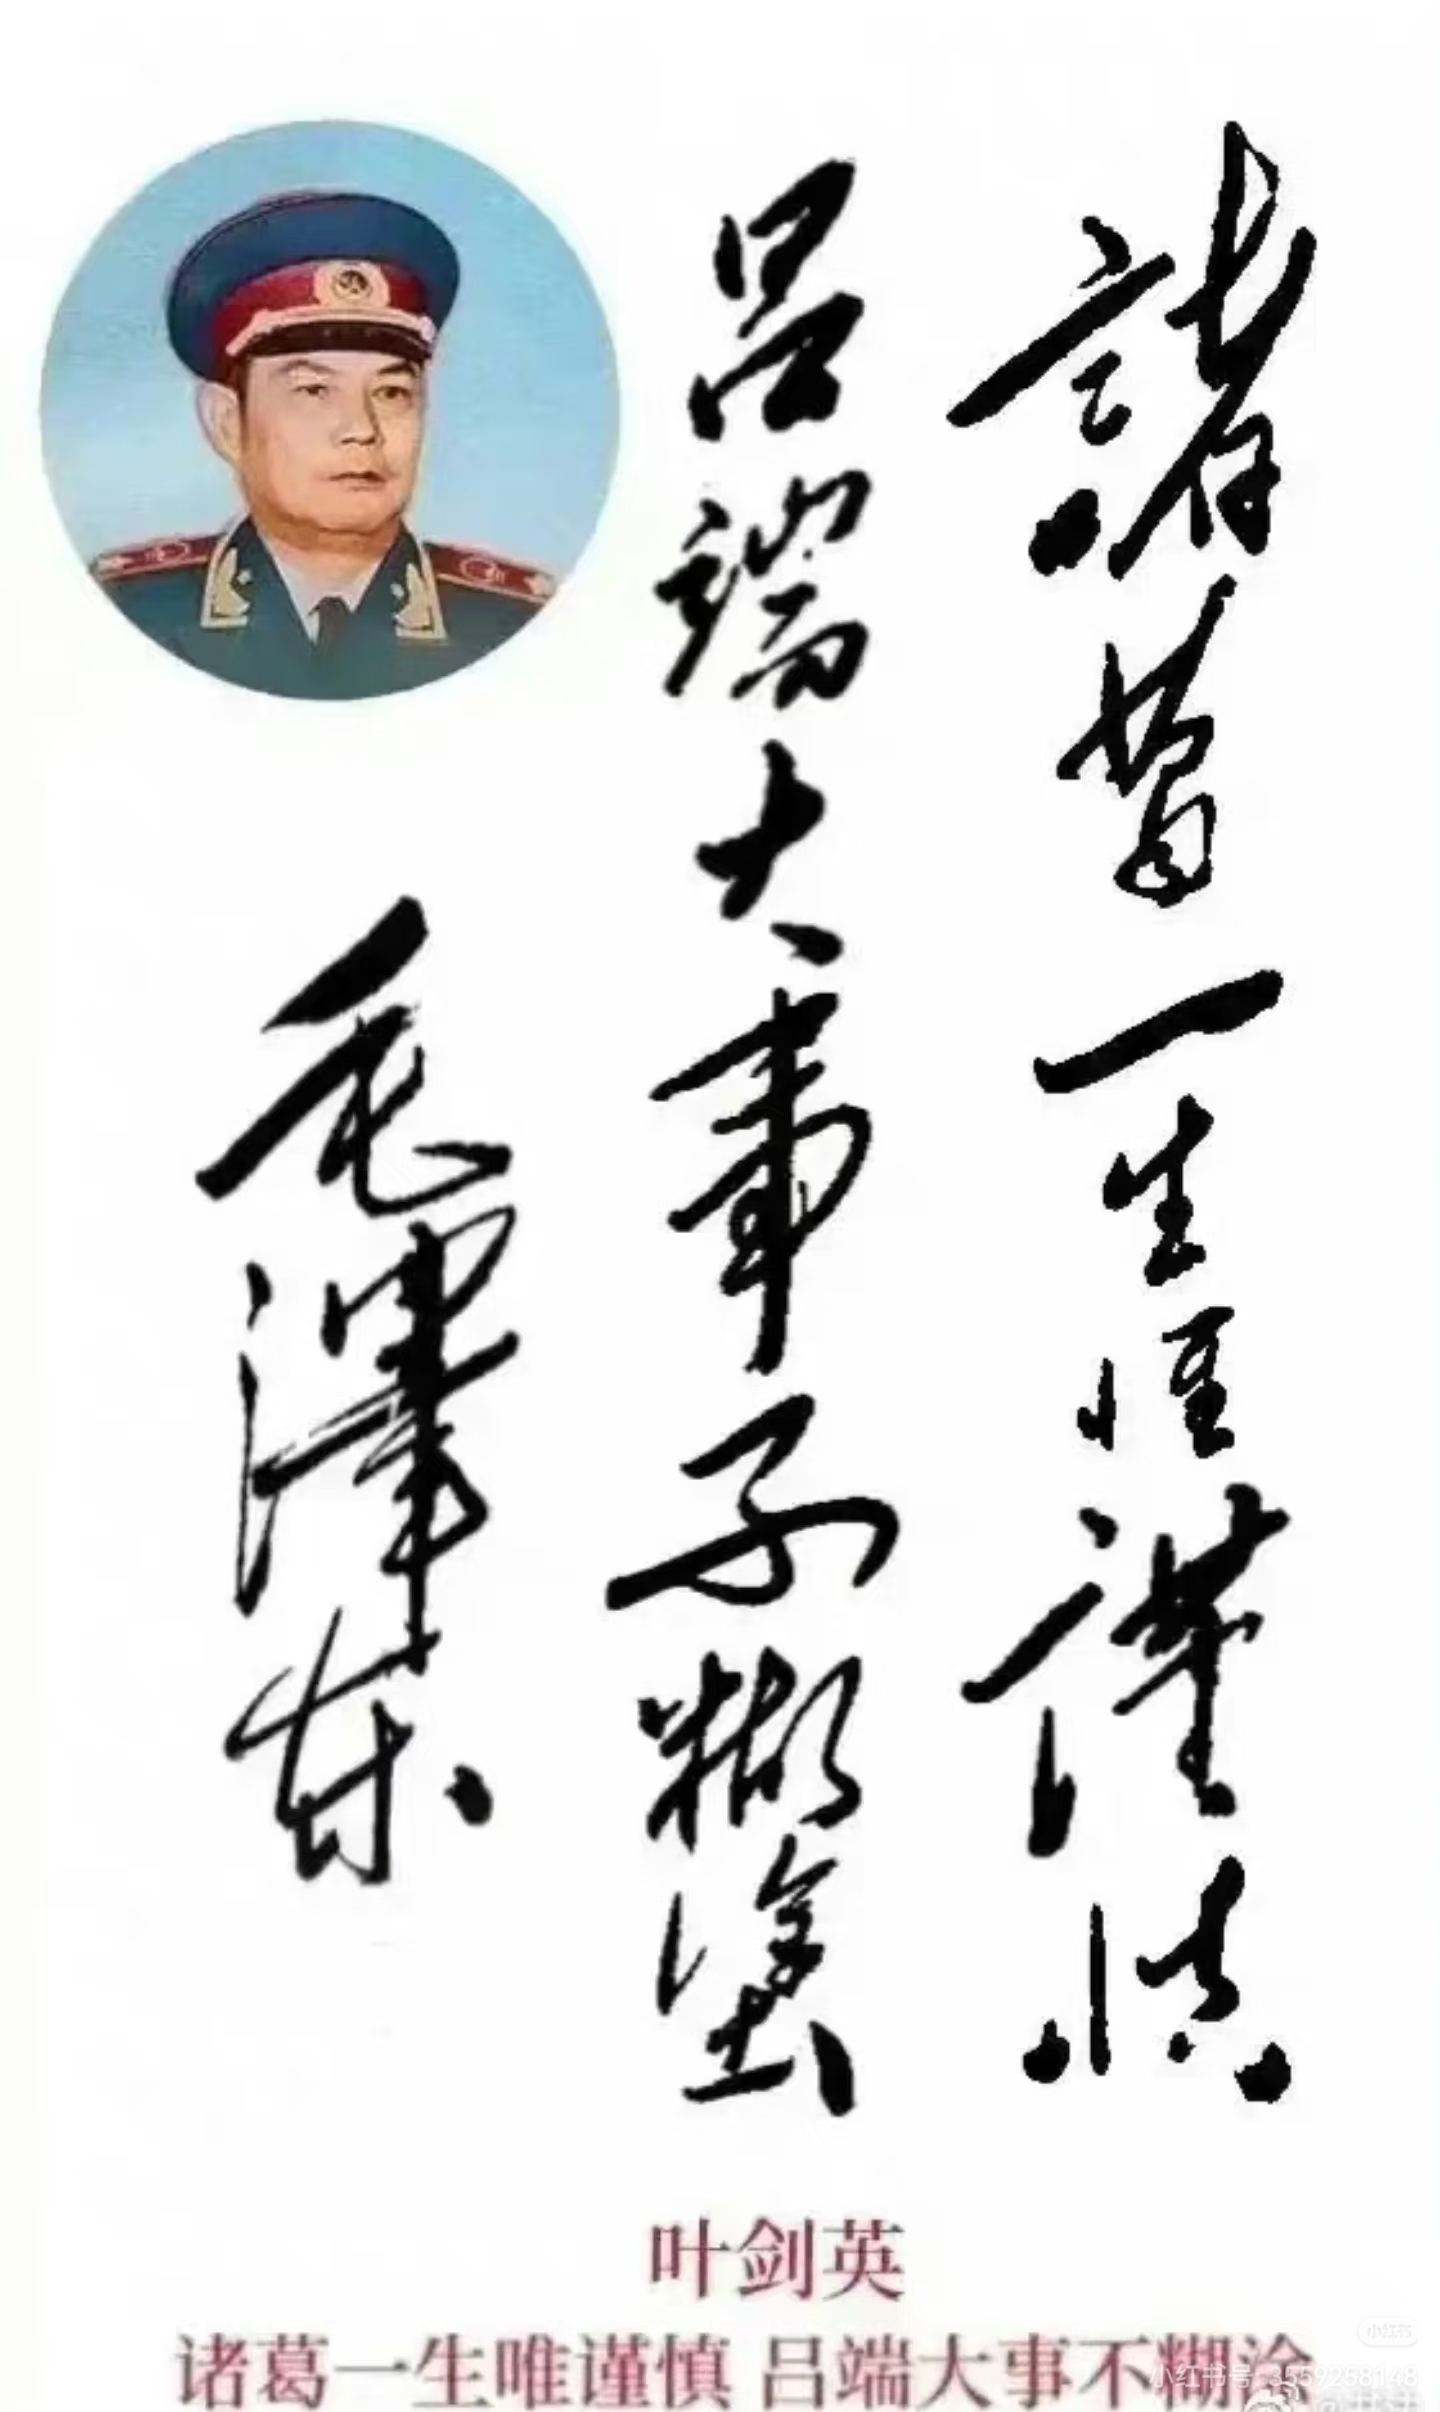 諸葛一生惟謹慎
吕端大事不糊塗
毛澤东
叶剑英
诸葛一生唯谨慎 吕端大事不糊涂
小红书
小红书号: 3559258148